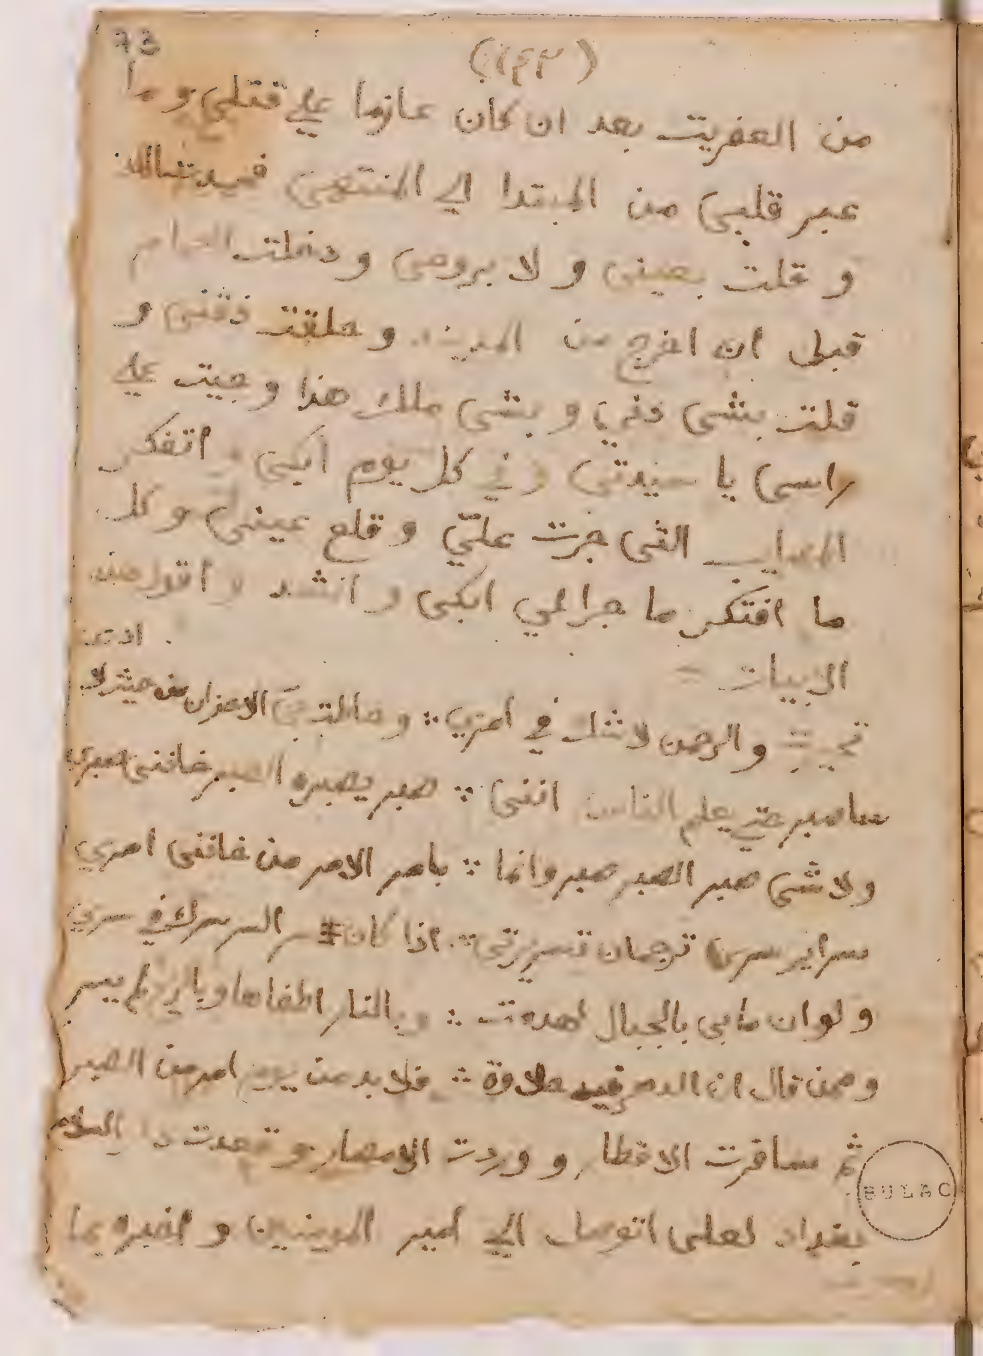 73
(١٤٣)
من العفريت بعد ان كان عازما علي قتلي وما
عبر قلبي من المبتدا الي المنتهي فحمدت الله
و قلت بعيني و لا بروحي و دخلت الحمام
قبل ان اخرج من المدينه و حلقت ذقني و
قلت بشي و بشي ملك هذا و جيت علي
راسي يا سيدتي و في كل يوم ابكي و اتفكر
المصايب التي جرت عليّ و قلع عيني و كل
ما افتكر ما جرا لي ابكي و انشد و اقول هذه
الابيات
والرحمن لا شك في امري ⁖ و الاحزان من حيث لا
ساصبر حتي يعلم الناس انني ⁖ صبر يصبره الصبر خانني صبري
ولا شي صبر الصبر صبر وانما ⁖ بامر الامر من خانني امري
سراير سري ترجمان ⁖ اذا كان سر السر سرك في سري
و لو ان ما بي بالجبال لهدمت ⁖ و بالنار اطفاها و بالريح لم يسر
و من قال ان الدهر فيه حلاوة ⁖ فلا بد من يوم امر من الصبر
ثم سافرت الاقطار و وردت الامصار و قصدت دار السلام
بغداد لعلي اتوصل الي امير المومنين و اخبره بما
BULAC